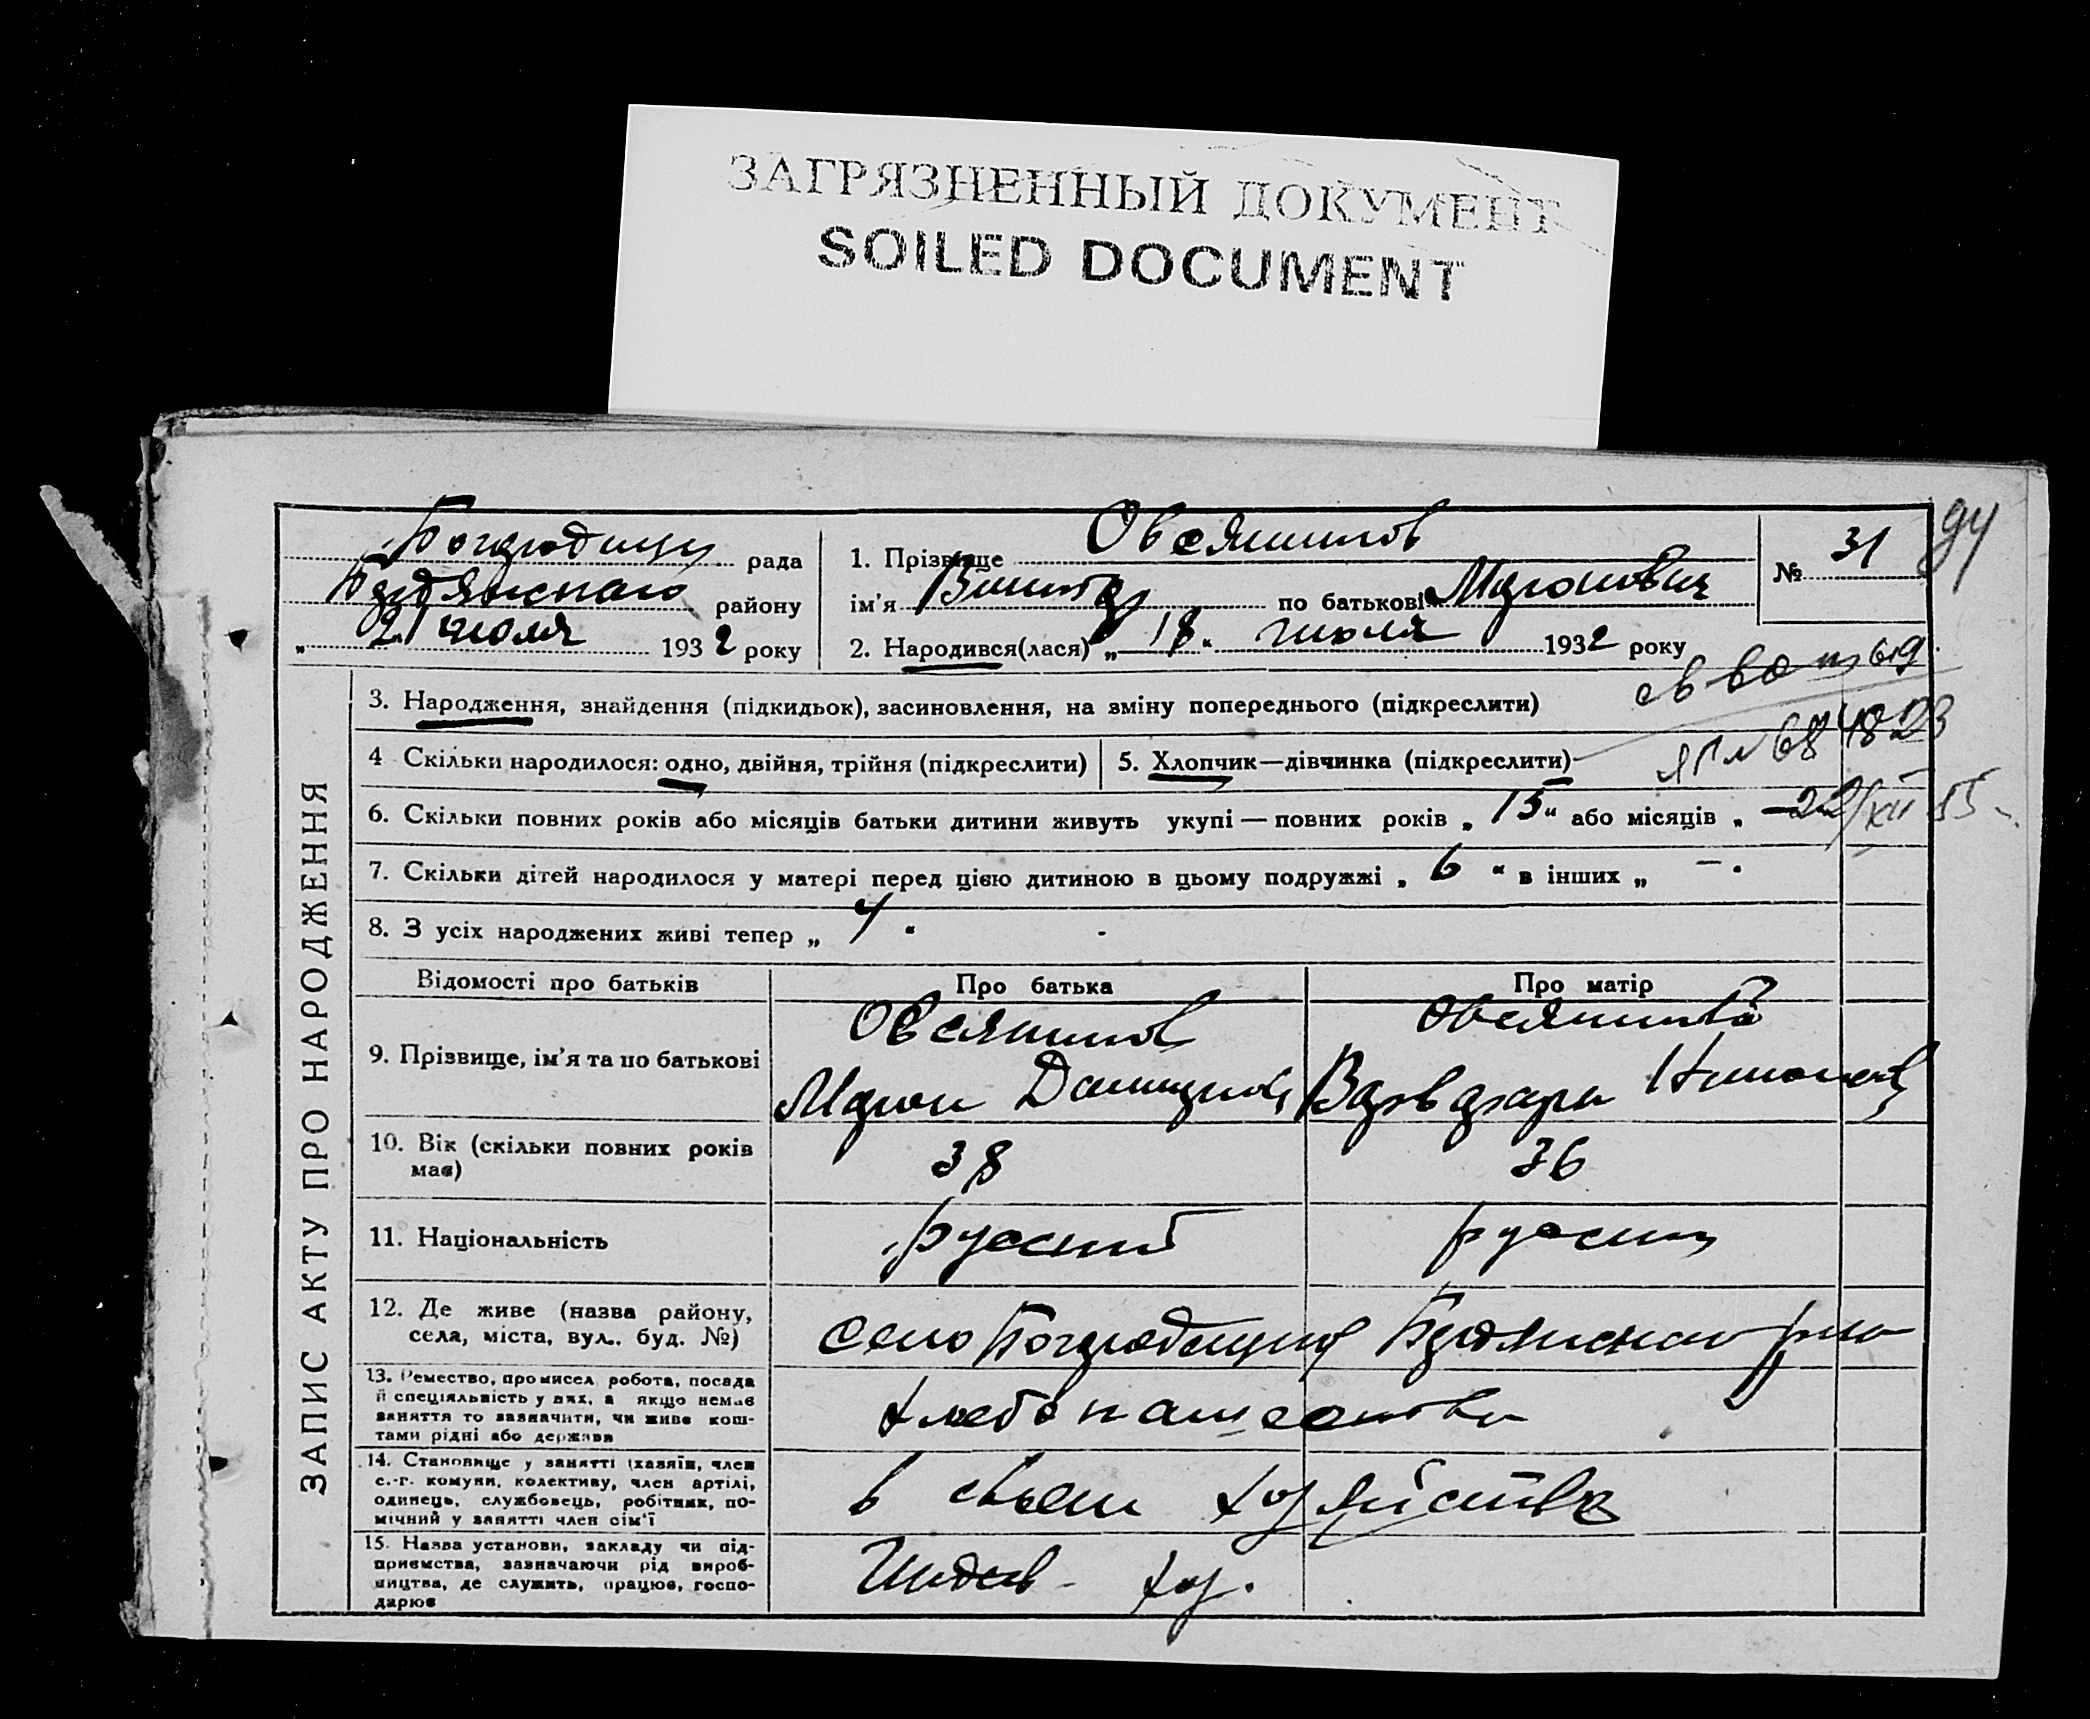 ЗАГРЯЗНЕННЫЙ ДОКУМЕНТ
SOILED DOCUMENT
94
рада
Бердянского району
21 июля 1932 року
1. Прізвище Овсянников
ім'я Виктор по батькові Миронович
№ 31
2. Народився(лася) „ 18 " июля 1932 року
св во 619
ЯП № 684823
22/XII 55
ЗАПИС АКТУ ПРО НАРОДЖЕННЯ
3. Народження, знайдення (підкидьок), засиновлення, на зміну попереднього (підкреслити)
4 Скільки народилося: одно, двійня, трійня (підкреслити)
5. Хлопчик—дівчинка (підкреслити)
6. Скільки повних років або місяців батьки дитини живуть укупі — повних років „ 15 " або місяців „ —
7. Скільки дітей народилося у матері перед цією дитиною в цьому подружжі „ 6 " в інших „ — "
8. З усіх народжених живі тепер „ 4 "
Відомості про батьків
Про батька
Про матір
9. Прізвище, ім'я та по батькові
Овсянников
Мирон
Овсянникова
Варвара
10. Вік (скільки повних років має)
38
36
11. Національність
русский
русская
12. Де живе (назва району,
села, міста, вул. буд. №)
село Бердянского р-на
13. Ремество, промисел, робота, посада
й спеціяльність у них, а якщо немає
заняття то зазначити, чи живе кош-
тами рідні або держави
хлебопашество
14. Становище у занятті (хазяїн, член
с.-г. комуни, колективу, член артілі,
одинець, службовець, робітник, по-
мічний у занятті член сім'ї
в своем хозяйстве
15. Назва установи, закладу чи під-
приємства, зазначаючи рід вироб-
ництва, де служить, працює, госпо-
дарює
Индив. хоз.